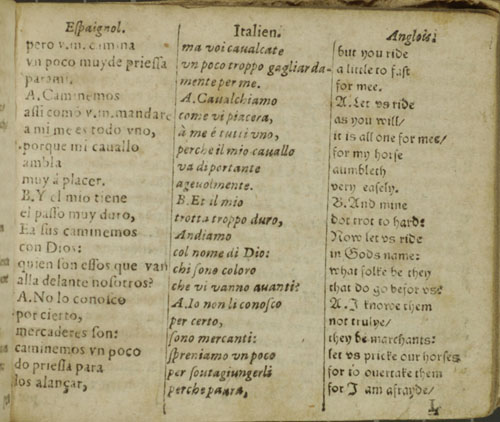 Espaignol.
pero v.m. cimina
vn poco muy de priessa
para mi.
A. Caminemos
assi como v.m. mandare
a mi me es todo vno,
porque mi cauallo
ambla
muy à placer.
B. Y el mio tiene
el passo muy duro,
Ea sus caminemos
con Dios:
quien son essos que van
alla delante nosotros?
A. No lo conosco
por cierto,
mercaderes son:
caminemos vn poco
do priessa para
los alançar,
Italien.
ma voi caualcate
vn poco troppo gagliarda-
mente per me.
A. Caualchiamo
come vi piacera,
à me é tutti vno,
perche il mio cauallo
va di portante
ageuolmente.
B. Et il mio
trotta troppo duro,
Andiamo
col nome di Dio:
chi sono coloro
che vi vanno auanti?
A. Io non li conosco
per certo,
sono mercanti:
spreniamo vn poco
per soutagiungerli
perche
Anglois:
but you ride
a little to fast
for mee.
A. Let vs ride
as you will/
it is all one for mee/
for my horse
aumbleth
very easely.
B. And mine
dot trot to hard:
Now let vs ride
in Gods name:
what folke be they
that do go befor vs?
A. I knowe them
not trulye/
they be marchants:
let vs pricke our horses
for to ouertake them
for I am afrayde/
L